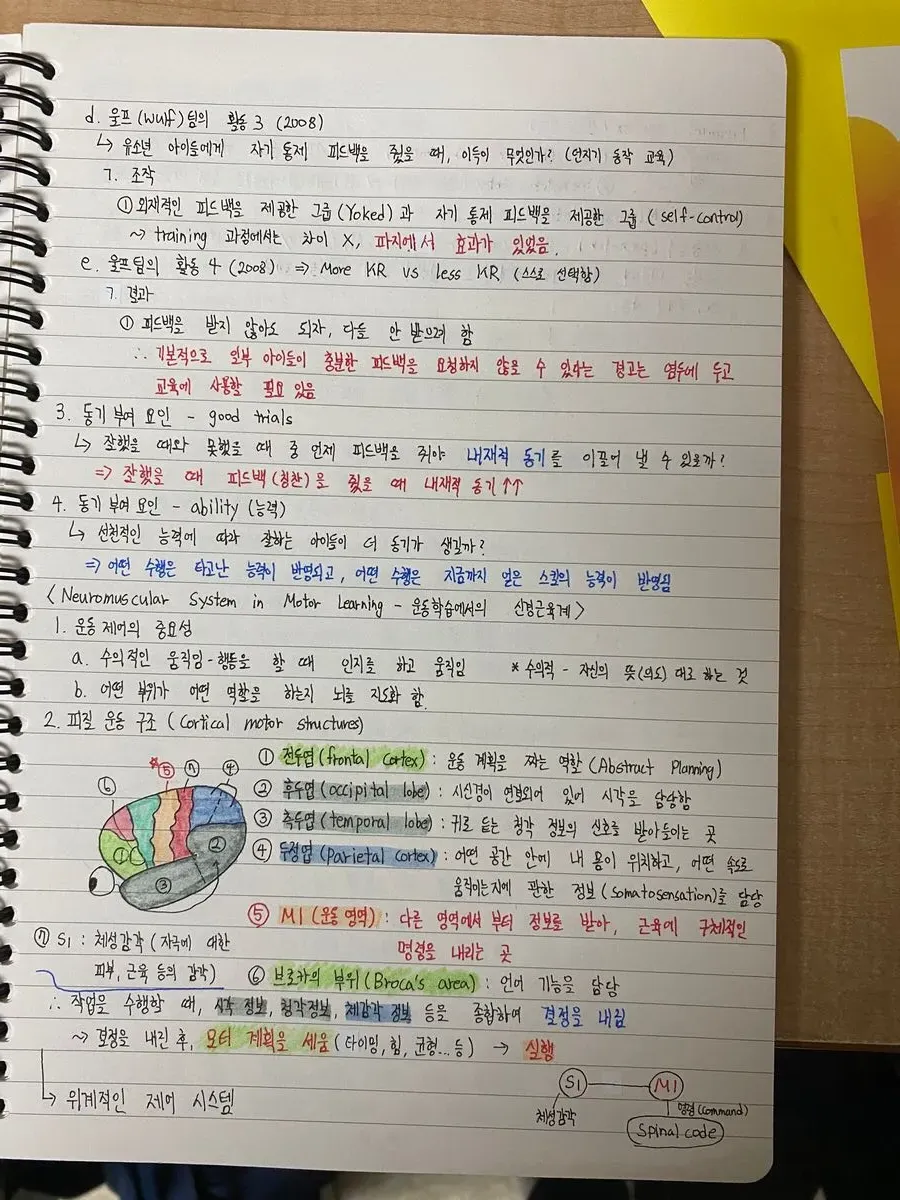 d. 울프(Wulf)팀의 활동 3 (2008)
↳ 유소년 아이들에게 자기 통제 피드백을 줬을 때, 이득이 무엇인가? (던지기 동작 교육)
ㄱ. 조작
① 외재적인 피드백을 제공한 그룹(Yoked)과 자기 통제 피드백을 제공한 그룹 (self-control)
~ training 과정에서는 차이 X, 파지에서 효과가 있었음.
e. 울프팀의 활동 4 (2008) ⇒ More KR vs less KR (스스로 선택함)
ㄱ. 결과
① 피드백을 받지 않아도 되자, 다들 안 받으려 함
∴ 기본적으로 일부 아이들이 충분한 피드백을 요청하지 않을 수 있다는 경고는 염두에 두고
교육에 사용할 필요 있음
3. 동기 부여 요인 - good trials
↳ 잘했을 때와 못했을 때 중 언제 피드백을 줘야 내재적 동기를 이끌어 낼 수 있을까?
⇒ 잘했을 때 피드백(칭찬)을 줬을 때 내재적 동기↑↑
4. 동기 부여 요인 - ability (능력)
↳ 선천적인 능력에 따라 잘하는 아이들이 더 동기가 생길까?
⇒ 어떤 수행은 타고난 능력이 반영되고, 어떤 수행은 지금까지 얻은 스킬의 능력이 반영됨
< Neuromuscular System in Motor Learning - 운동학습에서의 신경근육계 >
1. 운동 제어의 중요성
a. 수의적인 움직임-행동을 할 때 인지를 하고 움직임 * 수의적 - 자신의 뜻(의도)대로 하는 것
b. 어떤 부위가 어떤 역할을 하는지 뇌를 지도화 함.
2. 피질 운동 구조 (Cortical motor structures)
① 전두엽(frontal cortex) : 운동 계획을 짜는 역할 (Abstract Planning)
② 후두엽(occipital lobe) : 시신경이 연결되어 있어 시각을 담당함
③ 측두엽(temporal lobe) : 귀로 듣는 청각 정보의 신호를 받아들이는 곳
④ 두정엽(Parietal cortex) : 어떤 공간 안에 내 몸이 위치하고, 어떤 속도로
움직이는지에 관한 정보 (somatosensation)를 담당
⑤ M1 (운동 영역) : 다른 영역에서 부터 정보를 받아, 근육에 구체적인
명령을 내리는 곳
⑥ 브로카의 부위(Broca's area) : 언어 기능을 담당
⑥ *⑤ ⑦ ④
① ② ③
⑦ S1 : 체성감각 (자극에 대한
피부, 근육 등의 감각)
∴ 작업을 수행할 때, 시각 정보, 청각정보, 체감각 정보 등을 종합하여 결정을 내림
~ 결정을 내린 후, 모터 계획을 세움 (타이밍, 힘, 균형...등) → 실행
↳ 위계적인 제어 시스템
S1 M1
체성감각 명령(command)
Spinal code